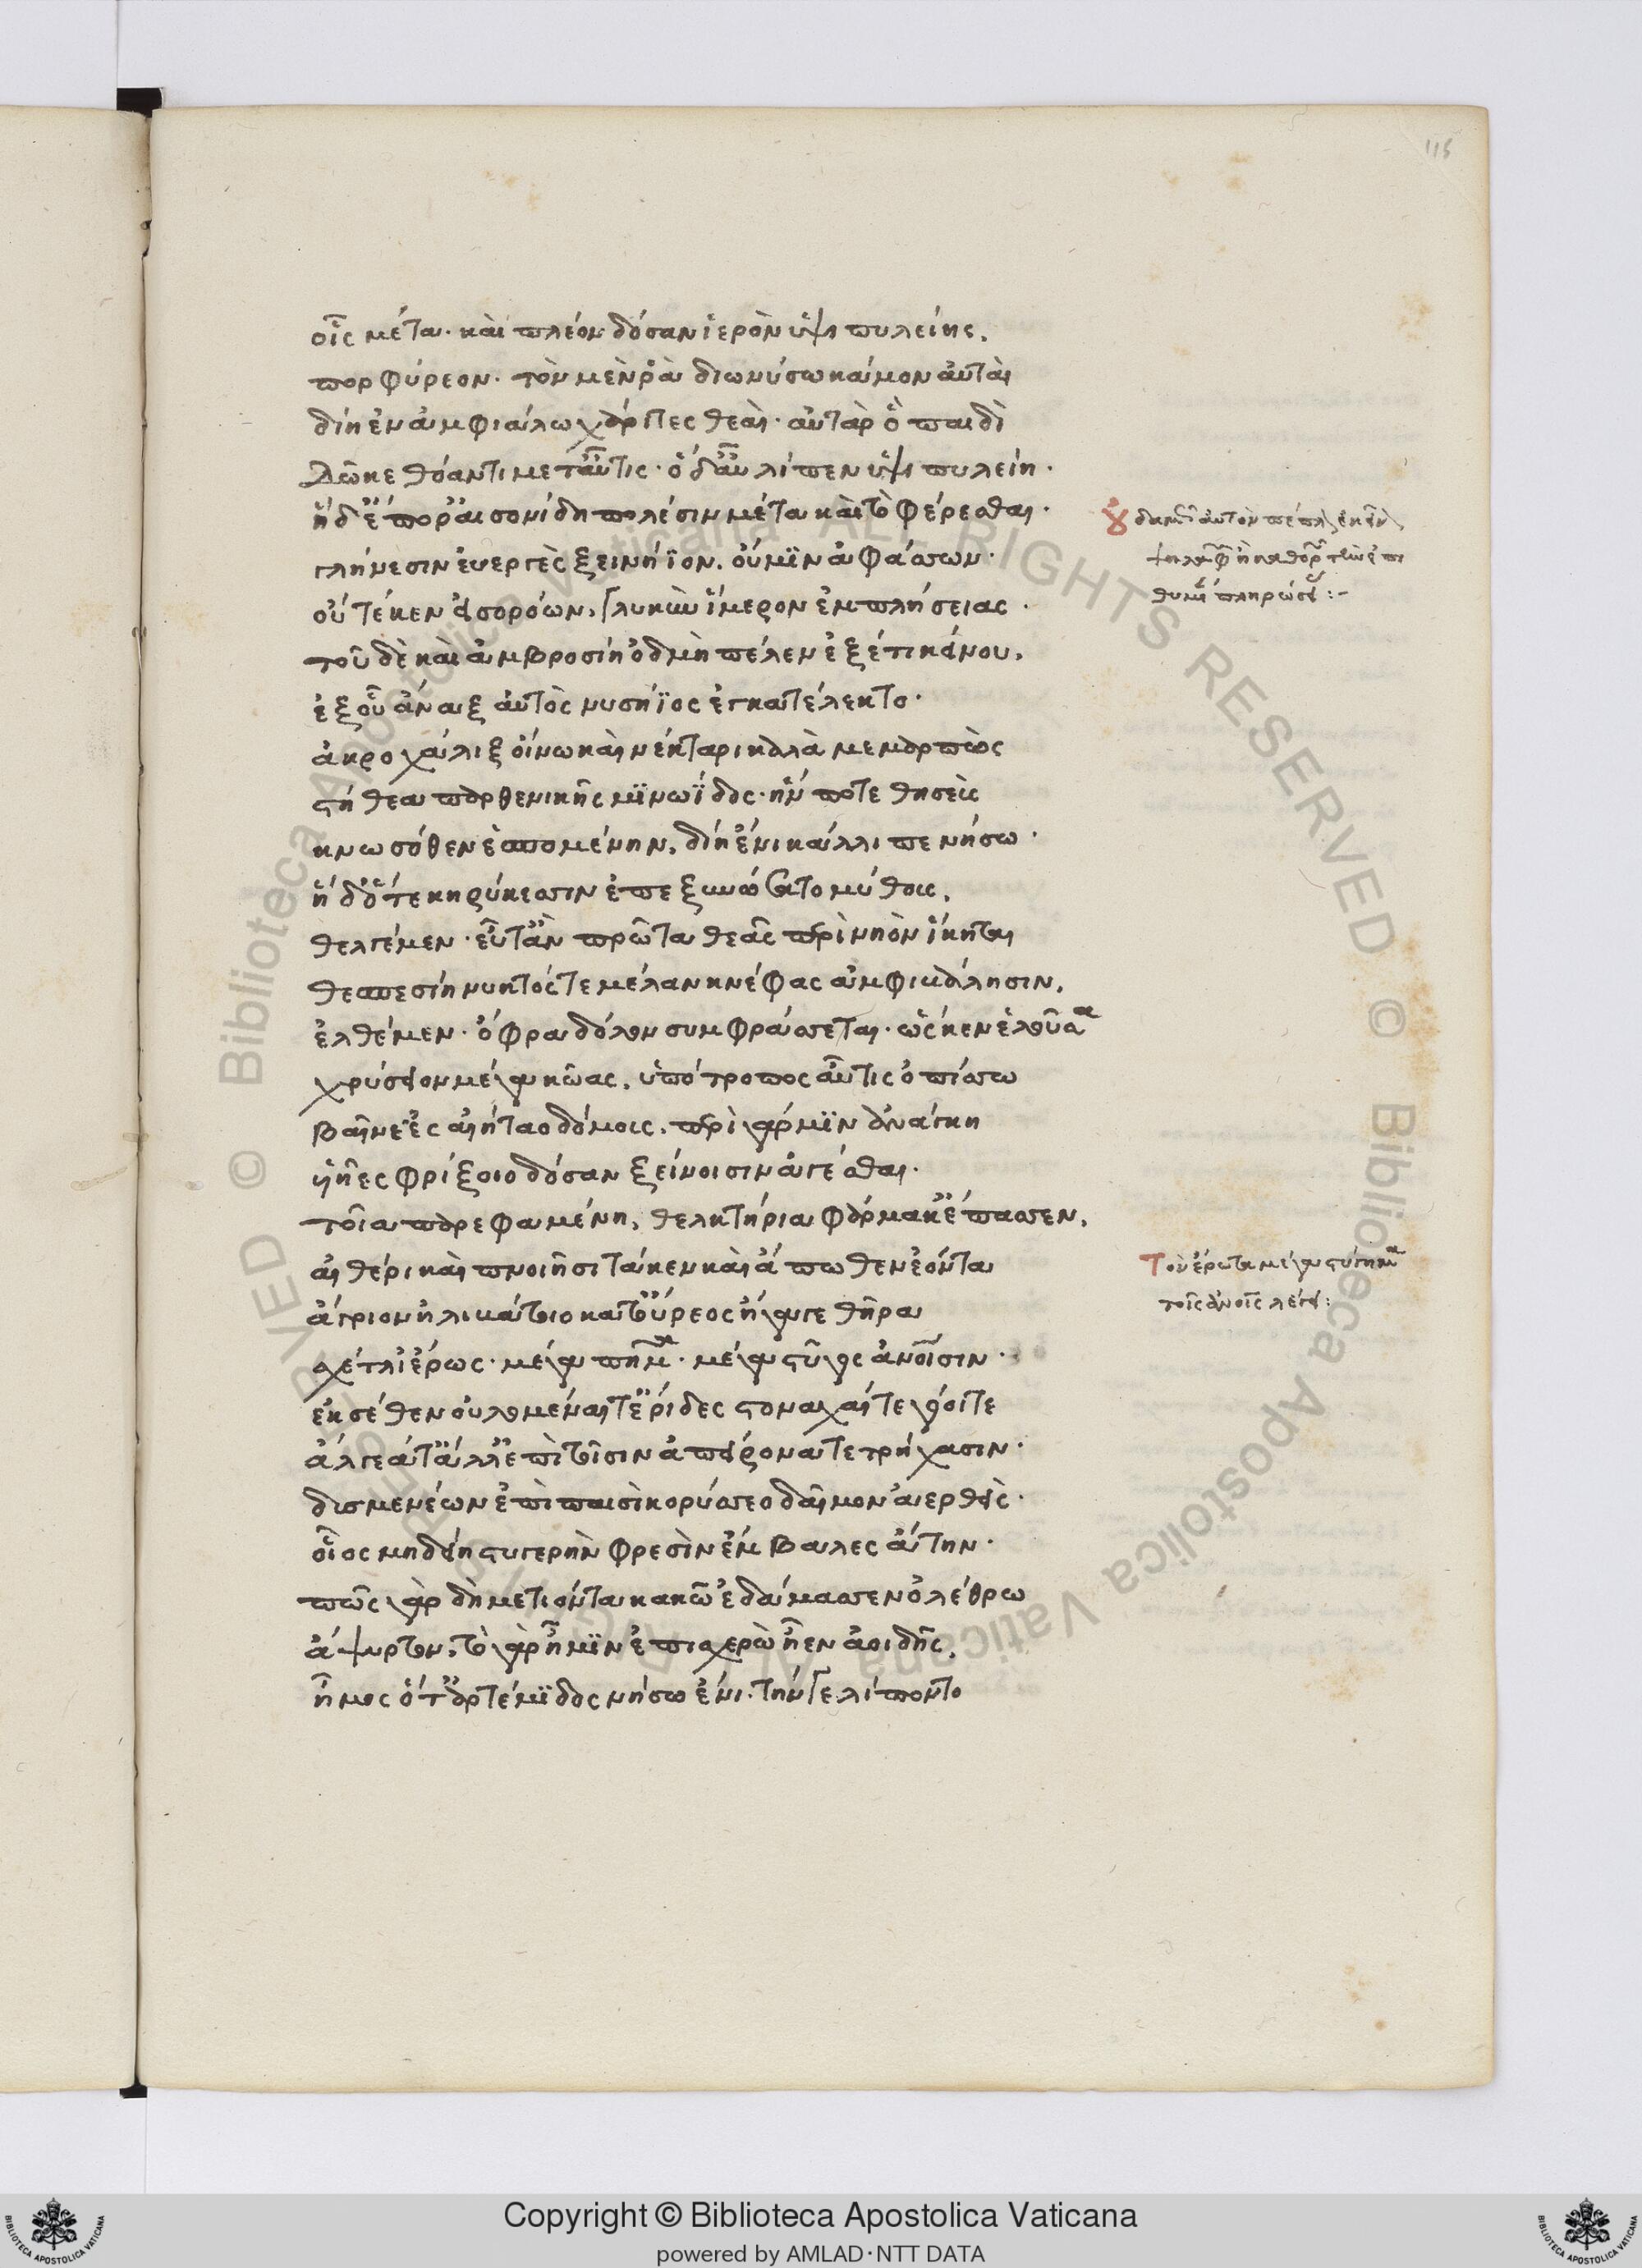 115
οἷς μέτα· καὶ πλέον δόσαν ἱερὸν ὑψιπυλείης.
πορφύρεον· τὸν μὲν ῥὰ διωνύσω κάμον αὐταὶ
δίη ἐν ἀμφιάλω χάριτες θεαὶ· αὐτὰρ ὃ παιδὶ
Δῶκε θόαντι μεταῦτις· ὁ δ' αὖ λίπεν ὑψιπυλείη·
ἡ δ' ἔπορ' αἰσονίδη πολέσιν μέτα καὶ τὸ φέρεσθαι·
γλήνεσιν ἐυεργὲς ξεινήϊον. οὔ μϊν ἀφάσσων·
οὔτέ κεν εἰσορόων, γλυκὺν ἵμερον ἐμπλήσειας·
τοῦ δὲ καὶ ἀμβροσίη ὀδμὴ πέλεν ἐξέτι κείνου,
ἐξ οὗ ἄναξ αὐτὸς νυσήϊος ἐγκατέλεκτο·
ἀκροχάλιξ οἴνω καὶ νέκταρι καλὰ μεμαρπὼς
στήθεα παρθενικῆς μϊνωΐδος· ἥν ποτε θησεὺς
κνωσόθεν ἑσπομένην, δίη ἔνι κάλλιπε νήσω·
ἡ δ' ὅτε κηρύκεσσιν ἐπεξυνώσατο μύθους,
θελγέμεν· εὖτ' ἂν πρῶτα θεᾶς περὶ νηὸν ἵκηται
θεσπεσίη νυκτός τε μέλαν κνέφας ἀμφιβάλησιν,
ἐλθέμεν· ὄφρα δόλον συμφράσσεται· ὥς κεν ἑλοῦσα
χρύσειον μέγα κῶας, ὑπότροπος αὖτις ὀπίσσω
βαίη ἐς αἰήταο δόμοις. περὶ γάρ μϊν ἀνάγκη
υἱῆες φρίξοιο δόσαν ξείνοισιν ἄγεσθαι·
τοῖα παρεφαμένη, θελκτήρια φάρμακ' ἔπασσεν,
αἰθέρι καὶ πνοιῆσι τά κεν καὶ ἄπωθεν ἐόντα
ἄγριον ἠλιβάτοιο κατ' οὔρεος ἤγαγε θῆρα
σχέτλι' ἔρως· μέγα πῆμα· μέγα στύγος ἀνοῖσιν·
ἐκ σέθεν οὐλόμεναί τ' ἔριδες στοναχαί τε γόοι τε
ἄλγεά τ' ἄλλ' ἐπὶ τοῖσιν ἀπείρονα τετρήχασιν·
δυσμενέων ἐπὶ παισὶ κορύσσεο δαῖμον ἀερθεὶς·
οἷος μηδείη στυγερὴν φρεσὶν ἔμβαλες ἄτην·
πῶς γὰρ δὴ μετιόντα κακῶ ἐδάμασσεν ὀλέθρω
ἄψυρτον. τὸ γὰρ ἧμϊν ἐπισχερὼ ἦεν ἀοιδῆς,
ἦμος ὅτ' ἀρτέμϊδος νήσω ἔνι. τήν γε λίποντο
θυμὸν πληρώσει:-
Τὸν ἔρωτα μέγα στύγημα
τοῖς ἀνοις λέγει:
Copyright © Biblioteca Apostolica Vaticana
powered by AMLAD·NTT DATA
© Biblioteca Apostolica Vaticana ALL RIGHTS RESERVED © Biblioteca Apostolica Vaticana ALL RIGHTS RESERVED
BIBLIOTECA APOSTOLICA VATICANA
BIBLIOTECA APOSTOLICA VATICANA